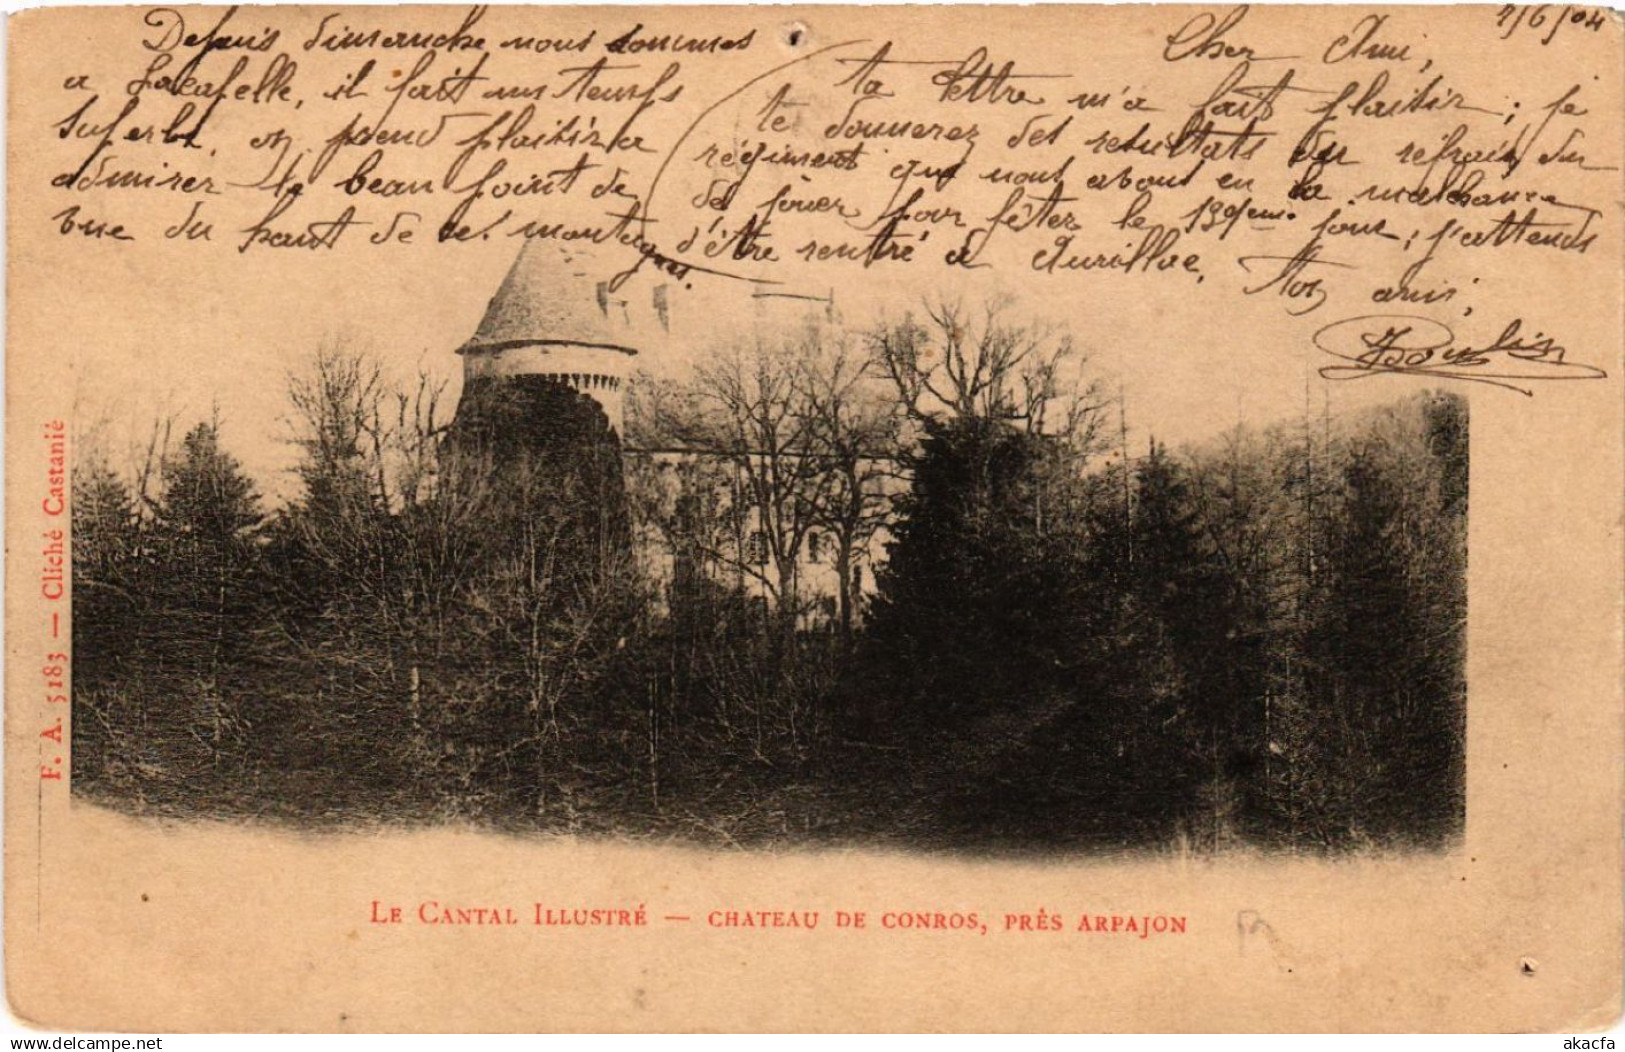 2/6/04
Cher Ami,
ta lettre m'a fait plaisir ; je
te donnerez des resultats du refrain du
régiment que nous avons en la malchance
de jouer pour fêter le 139eme jour ; j'attends
d'être rentré à Aurillac. Ton ami,
Boulin
Depuis dimanche nous sommes
a Lacapelle, il fait un temps
superbe, on prend plaisir a
admirer le beau point de
vue du haut de ses montagnes.
F. A. 5183 — Cliché Castanié
LE CANTAL ILLUSTRÉ — CHATEAU DE CONROS, PRÈS ARPAJON
akacfa